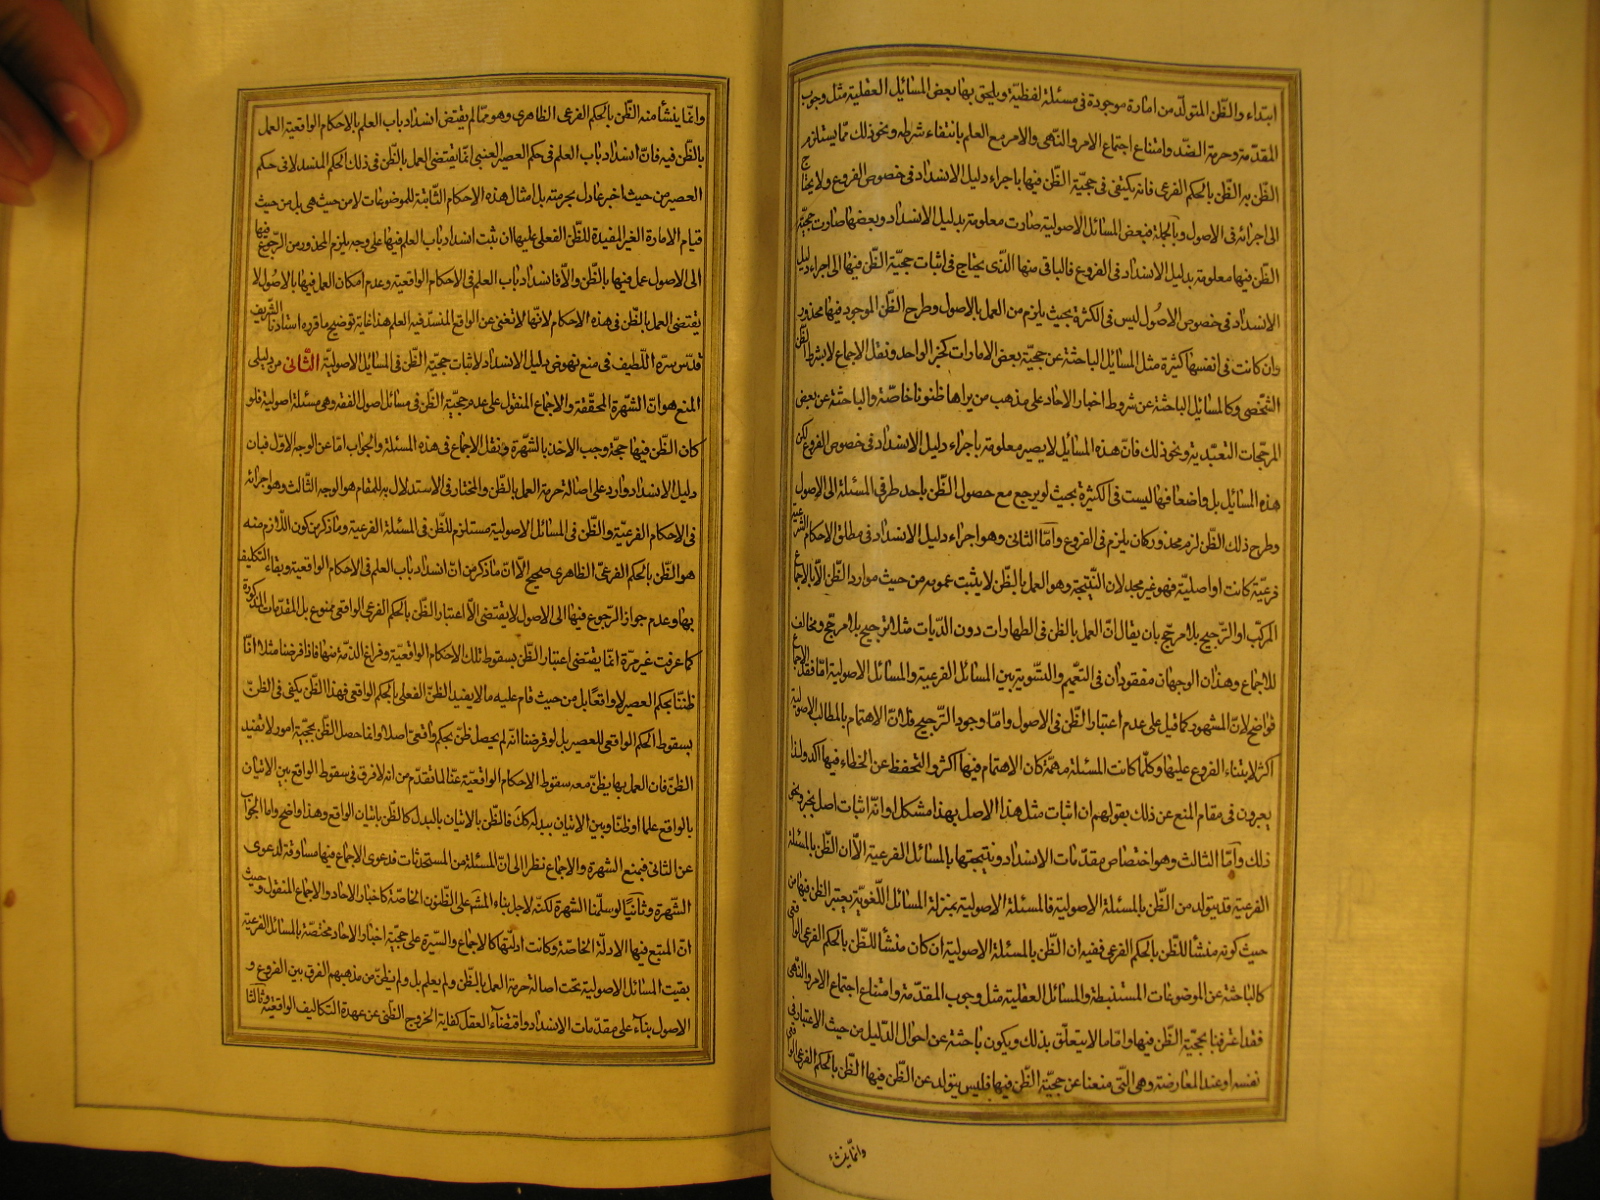 ابتداء والظّن المتولّد من امارة موجودة فى مسئلة لفظيّة ويلحق بها بعض المسائل العقلية مثل وجوب
المقدّمة وحرمة الضّد وامتناع اجتماع الامر والنّهى والامر مع العلم بانتفاء شرطه ونحو ذلك ممّا يستلزم
الظّن به الظّن بالحكم الفرعى فانه يكتفى فى حجيّة الظّن فيها باجراء دليل الانسداد فى خصوص الفروع ولا يحتاج
الى اجرائه فى الاصول وبالجملة فبعض المسائل الاصولية صارت معلومة بدليل الانسداد وبعضها صارت حجيّة
الظّن فيها معلومة بدليل الانسداد فى الفروع فالباقى منها الذّى يحتاج فى اثبات حجيّة الظّن فيها الى اجراء دليل
الانسداد فى خصوص الاصول ليس فى الكثرة بحيث يلزم من العمل بالاصول وطرح الظّن الموجود فيها محذور
وان كانت فى انفسها كثيرة مثل المسايل الباحثة عن حجيّة بعض الامارات كخبر الواحد ونقل الاجماع لا بشرط الظّن
الشّخصى وكالمسائل الباحثة عن شروط اخبار الاحاد على مذهب من يراها ظنونا خاصّة والباحثة عن بعض
المرجحات التعبّدية ونحو ذلك فانّ هذه المسايل لا يصير معلومة باجراء دليل الانسداد فى خصوص الفروع لكن
هذه المسايل بل واضعافها ليست فى الكثرة بحيث لو يرجع مع حصول الظّن باحد طرفى المسئلة الى الاصول
وطرح ذلك الظّن لزم محذور كان يلزم فى الفروع وامّا الثانى وهو اجراء دليل الانسداد فى مطلق الاحكام الشرعية
فرعيّة كانت او اصليّة فهو غير مجد لان النّتيجة وهو العمل بالظّن لا يثبت عمومه من حيث موارد الظّن الّا بالاجماع
المركّب او التّرجيح بلا مرجّح بان يقال انّ العمل بالظن فى الطهارات دون الدّيات مثلا ترجيح بلا مرجّح ومخالف
للاجماع وهذان الوجهان مفقودان فى التّعميم والتّسوية بين المسائل الفرعية والمسائل الاصولية امّا فقد الاجماع
فواضح لانّ المشهور كما قيل على عدم اعتبار الظّن فى الاصول وامّا وجود التّرجيح فلانّ الاهتمام بالمطالب الاصولية
اكثر لابتناء الفروع عليها وكلّما كانت المسئلة مهمّة كان الاهتمام فيها اكثر والتحفظ عن الخطاء فيها اكد ولذا
يعبرون فى مقام المنع عن ذلك بقولهم ان اثبات مثل هذا الاصل بهذا مشكل او انّه اثبات اصل بخبر ونحو
ذلك وامّا الثالث وهو اختصاص مقدّمات الانسداد ونتيجتها بالمسائل الفرعية الّا ان الظّن بالمسئلة
الفرعية قد يتولد من الظّن بالمسئلة الاصولية فالمسئلة الاصولية بمنزلة المسائل اللّغويّة يعتبر الظن فيها من
حيث كونه منشأ للظّن بالحكم الفرعى ففيه ان الظّن بالمسئلة الاصولية ان كان منشأ للظّن بالحكم الفرعى الواقعى
كالباحثة عن الموضوعات المستنبطة والمسائل العقلية مثل وجوب المقدّمة وامتناع اجتماع الامر والنّهى
فقد اعترفنا بحجيّة الظّن فيها وامّا ما لا يتعلّق بذلك ويكون باحثة عن احوال الدّليل من حيث الاعتبار فى
نفسه او عند المعارضة وهى الّتى منعنا عن حجيّة الظّن فيها فليس يتولد عن الظّن فيها الظّن بالحكم الفرعى الواقعى
وانّما ينشأ
وانّما ينشأ منه الظّن بالحكم الفرعى الظاهرى وهو ممّا لم يقتض انسداد باب العلم بالاحكام الواقعية العمل
بالظّن فيه فانّ انسداد باب العلم فى حكم العصير العنبى انّما يقتضى العمل بالظّن فى ذلك الحكم المنسد لا فى حكم
العصير من حيث اخبر عادل بحرمته بل امثال هذه الاحكام الثّابتة للموضوعات لا من حيث هى بل من حيث
قيام الامارة الغير المفيدة للظّن الفعلى عليها ان ثبت انسداد باب العلم فيها على وجه يلزم المحذور من الرّجوع فيها
الى الاصول عمل فيها بالظّن والّا فانسداد باب العلم فى الاحكام الواقعية وعدم امكان العمل فيها بالاصول لا
يقتضى العمل بالظّن فى هذه الاحكام لانّها لا تغنى عن الواقع المنسدّ فيه العلم هذا غاية توضيح ما قرره استادنا الشّريف
قدّس سرّه اللّطيف فى منع نهوض دليل الانسداد لاثبات حجيّة الظّن فى المسايل الاصوليّة الثّانى من دليلى
المنع هو انّ الشّهرة المحقّقة والاجماع المنقول على عدم حجيّة الظّن فى مسائل اصول الفقه وهى مسئلة اصولية فلو
كان الظّن فيها حجّة وجب الاخذ بالشّهرة ونقل الاجماع فى هذه المسئلة والجواب امّا عن الوجه الاوّل فبان
دليل الانسداد وارد على اصالة حرمة العمل بالظّن والمختار فى الاستدلال به للمقام هو الوجه الثّالث وهو اجرائه
فى الاحكام الفرعيّة والظّن فى المسائل الاصولية مستلزم للظّن فى المسئلة الفرعية وما ذكر من كون اللّازم منه
هو الظّن بالحكم الفرعىّ الظاهرى صحيح الّا انّ ما ذكر من انّ انسداد باب العلم فى الاحكام الواقعية وبقاء التكليف
بها وعدم جواز الرّجوع فيها الى الاصول لا يقتضى الّا اعتبار الظّن بالحكم الفرعى الواقعى ممنوع بل المقدّمات المذكورة
كما عرفت غير مرّة انّما يقتضى اعتبار الظّن بسقوط تلك الاحكام الواقعيّة وفراغ الذّمة منها فاذا فرضنا مثلا انّا
ظننّا بحكم العصير لا واقعًا بل من حيث قام عليه ما لا يفيد الظنّ الفعلى بالحكم الواقعى فهذا الظّن يكفى فى الظنّ
بسقوط الحكم الواقعى للعصير بل لو فرضنا انّه لم يحصل ظنّ بحكم واقعىّ اصلا وانما حصل الظّن بحجيّة امور لا تفيد
الظنّ فان العمل بها يظنّ معه سقوط الاحكام الواقعيّة عنّا لما تقدّم من انه لا فرق فى سقوط الواقع بين الاتيان
بالواقع علما او ظنّا وبين الاتيان ببدله كك فالظّن بالاتيان بالبدل كالظّن باتيان الواقع وهذا واضح واما الجواب
عن الثانى فبمنع الشهرة والاجماع نظرا الى انّ المسئلة من المستحدثات فدعوى الاجماع فيها مساوقة لدعوى
الشّهرة وثانيًا لو سلّمنا الشهرة لكنّه لاجل بناء المشهور على الظّنون الخاصّة كاخبار الاحاد والاجماع المنقول وحيث
انّ المتبع فيها الادلّة الخاصّة وكانت ادلّتها كالاجماع والسّيرة على حجيّة اخبار الاحاد مختصّة بالمسائل الفرعية
بقيت المسائل الاصولية تحت اصالة حرمة العمل بالظّن ولم يعلم بل ولم يظنّ من مذهبهم الفرق بين الفروع و
الاصول بناءً على مقدّمات الانسداد واقتضاء العقل كفاية الخروج الظّنى عن عهدة التكاليف الواقعيّة وثالثا